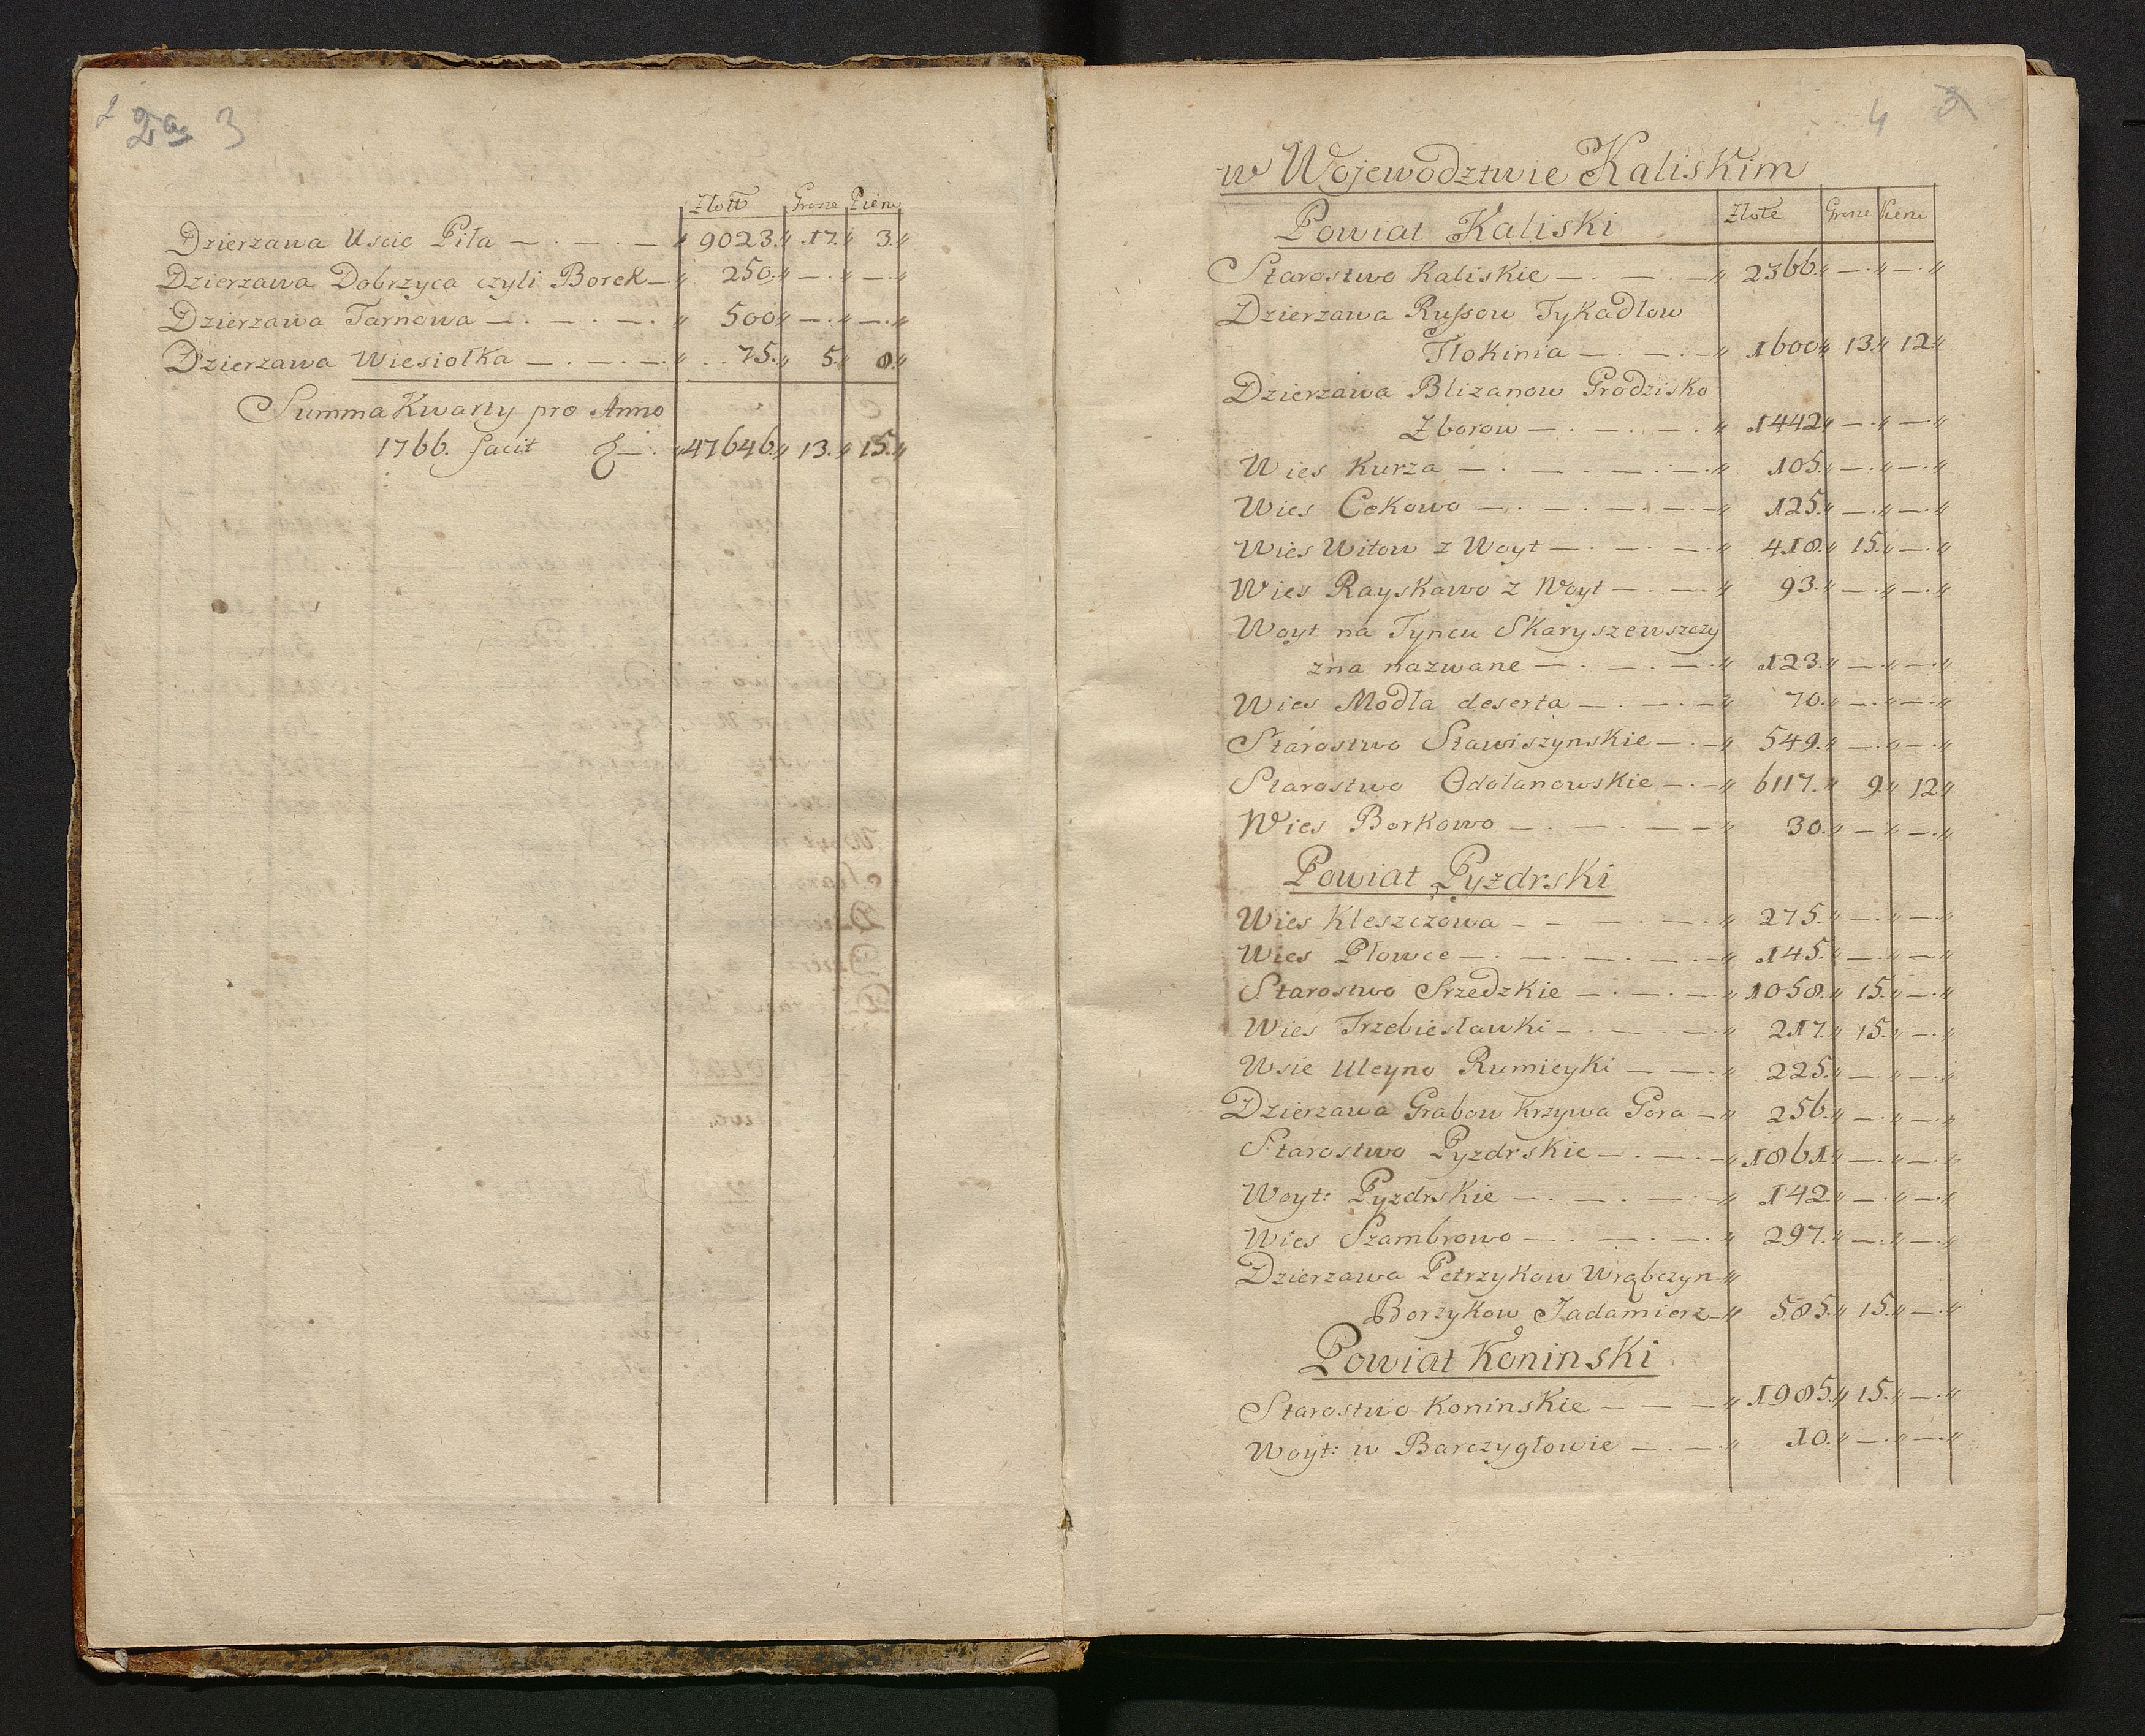 2 2a 3
Złott Grosze Pien:
Dzierzawa Uscie Piła — . — . — " 9023." 17." 3."
Dzierzawa Dobrzyca czyli Borek — " 250." — . " — . "
Dzierzawa Tarnowa — . — . — . " 500" — . " — . "
Dzierzawa Wiesiołka — . — . — . " 75." 5." 8."
Summa Kwarty pro Anno
1766. facit — . "47646." 13." 15."
4
w Wojewodztwie Kaliskim
Powiat Kaliski Złote Grosze Pien:
Starostwo Kaliskie — . — . — " 2366." — . " — . "
Dzierzawa Russow Tykadłow
Tłokinia — . — . — " 1600" 13." 12."
Dzierzawa Blizanow Grodzisko
Zborow — . — . — . " 1442" — . " — . "
Wies Kurza — . — . — . — . " 105." — . " — . "
Wies Cekowo — . — . — . — . " 125." — . " — . "
Wies Witow z Woyt — . — . — . " 418." 15." — . "
Wies Rayskowo z Woyt — . — . " 93." — . " — . "
Woyt na Tyncu Skaryszewszczy
zna nazwane — . — . — . " 123." — . " — . "
Wies Modła deserta — . — . — " 70." — . " — . "
Starostwo Stawiszynskie — . — " 549." — . " — . "
Starostwo Odolanowskie — . — " 6117." 9." 12"
Wies Borkowo — . — . — — " 30." — " — . "
Powiat Pyzdrski
Wies Kleszczowa — — . — . — . " 275." — . " — . "
Wies Płowce — . — . — . — . — " 145." — . " — . "
Starostwo Srzedzkie — . — . — " 1058." 15." — . "
Wies Trzebiesławki — . — . — " 217." 15." — . "
Wsie Uleyno Rumieyki — — . " 225." — . " — . "
Dzierzawa Grabow Krzywa Gora — " 256." — . " — . "
Starostwo Pyzdrskie — . — . — " 1861" — . " — . "
Woyt: Pyzdrskie — . — . — . — " 142" — . " — . "
Wies Szambrowo — . — . — . " 297." — . " — . "
Dzierzawa Petrzykow Wrąbczyn "
Borzykow Tadamierz — " 585." 15." — . "
Powiat Koninski
Starostwo Koninskie — — — " 1985." 15." — . "
Woyt: w Barczygłowie — . — . " 10." — . " — . "